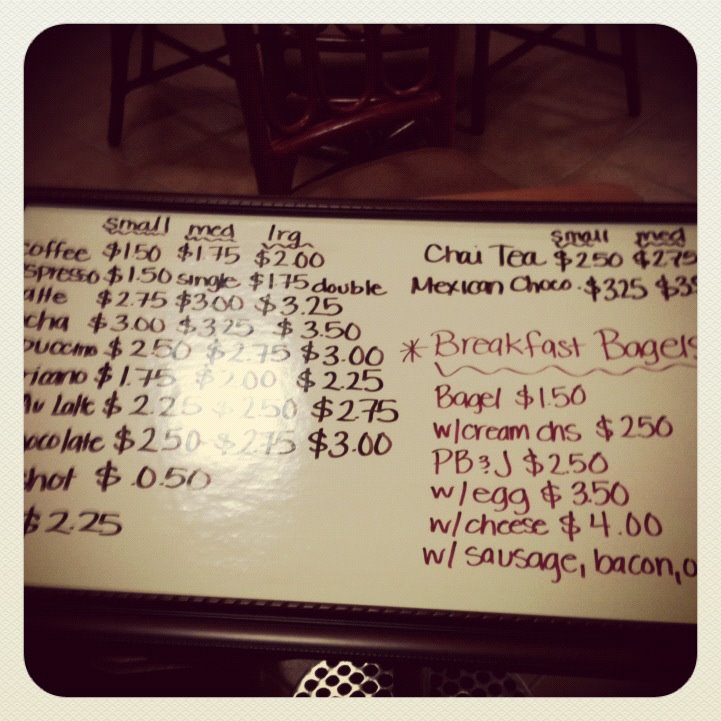 small med lrg
offee $1.50 $1.75 $2.00
spresso $1.50 single $1.75 double
atte $2.75 $3.00 $3.25
cha $3.00 $3.25 $3.50
puccino $2.50 $2.75 $3.00
ricano $1.75 $2.00 $2.25
Au Lait $2.25 $2.50 $2.75
ocolate $2.50 $2.75 $3.00
hot $0.50
$2.25
small med
Chai Tea $2.50 $2.75
Mexican Choco. $3.25 $3.5
*Breakfast Bagels
Bagel $1.50
w/cream chs $2.50
PB&J $2.50
w/egg $3.50
w/cheese $4.00
w/sausage, bacon, o